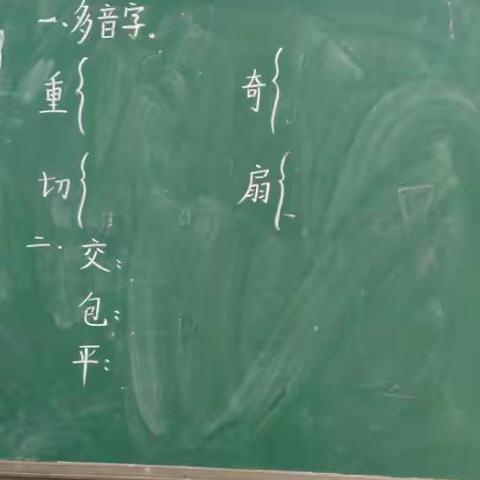 一、多音字。
重{ 奇{
切{ 扇{
二、交：
包：
平：